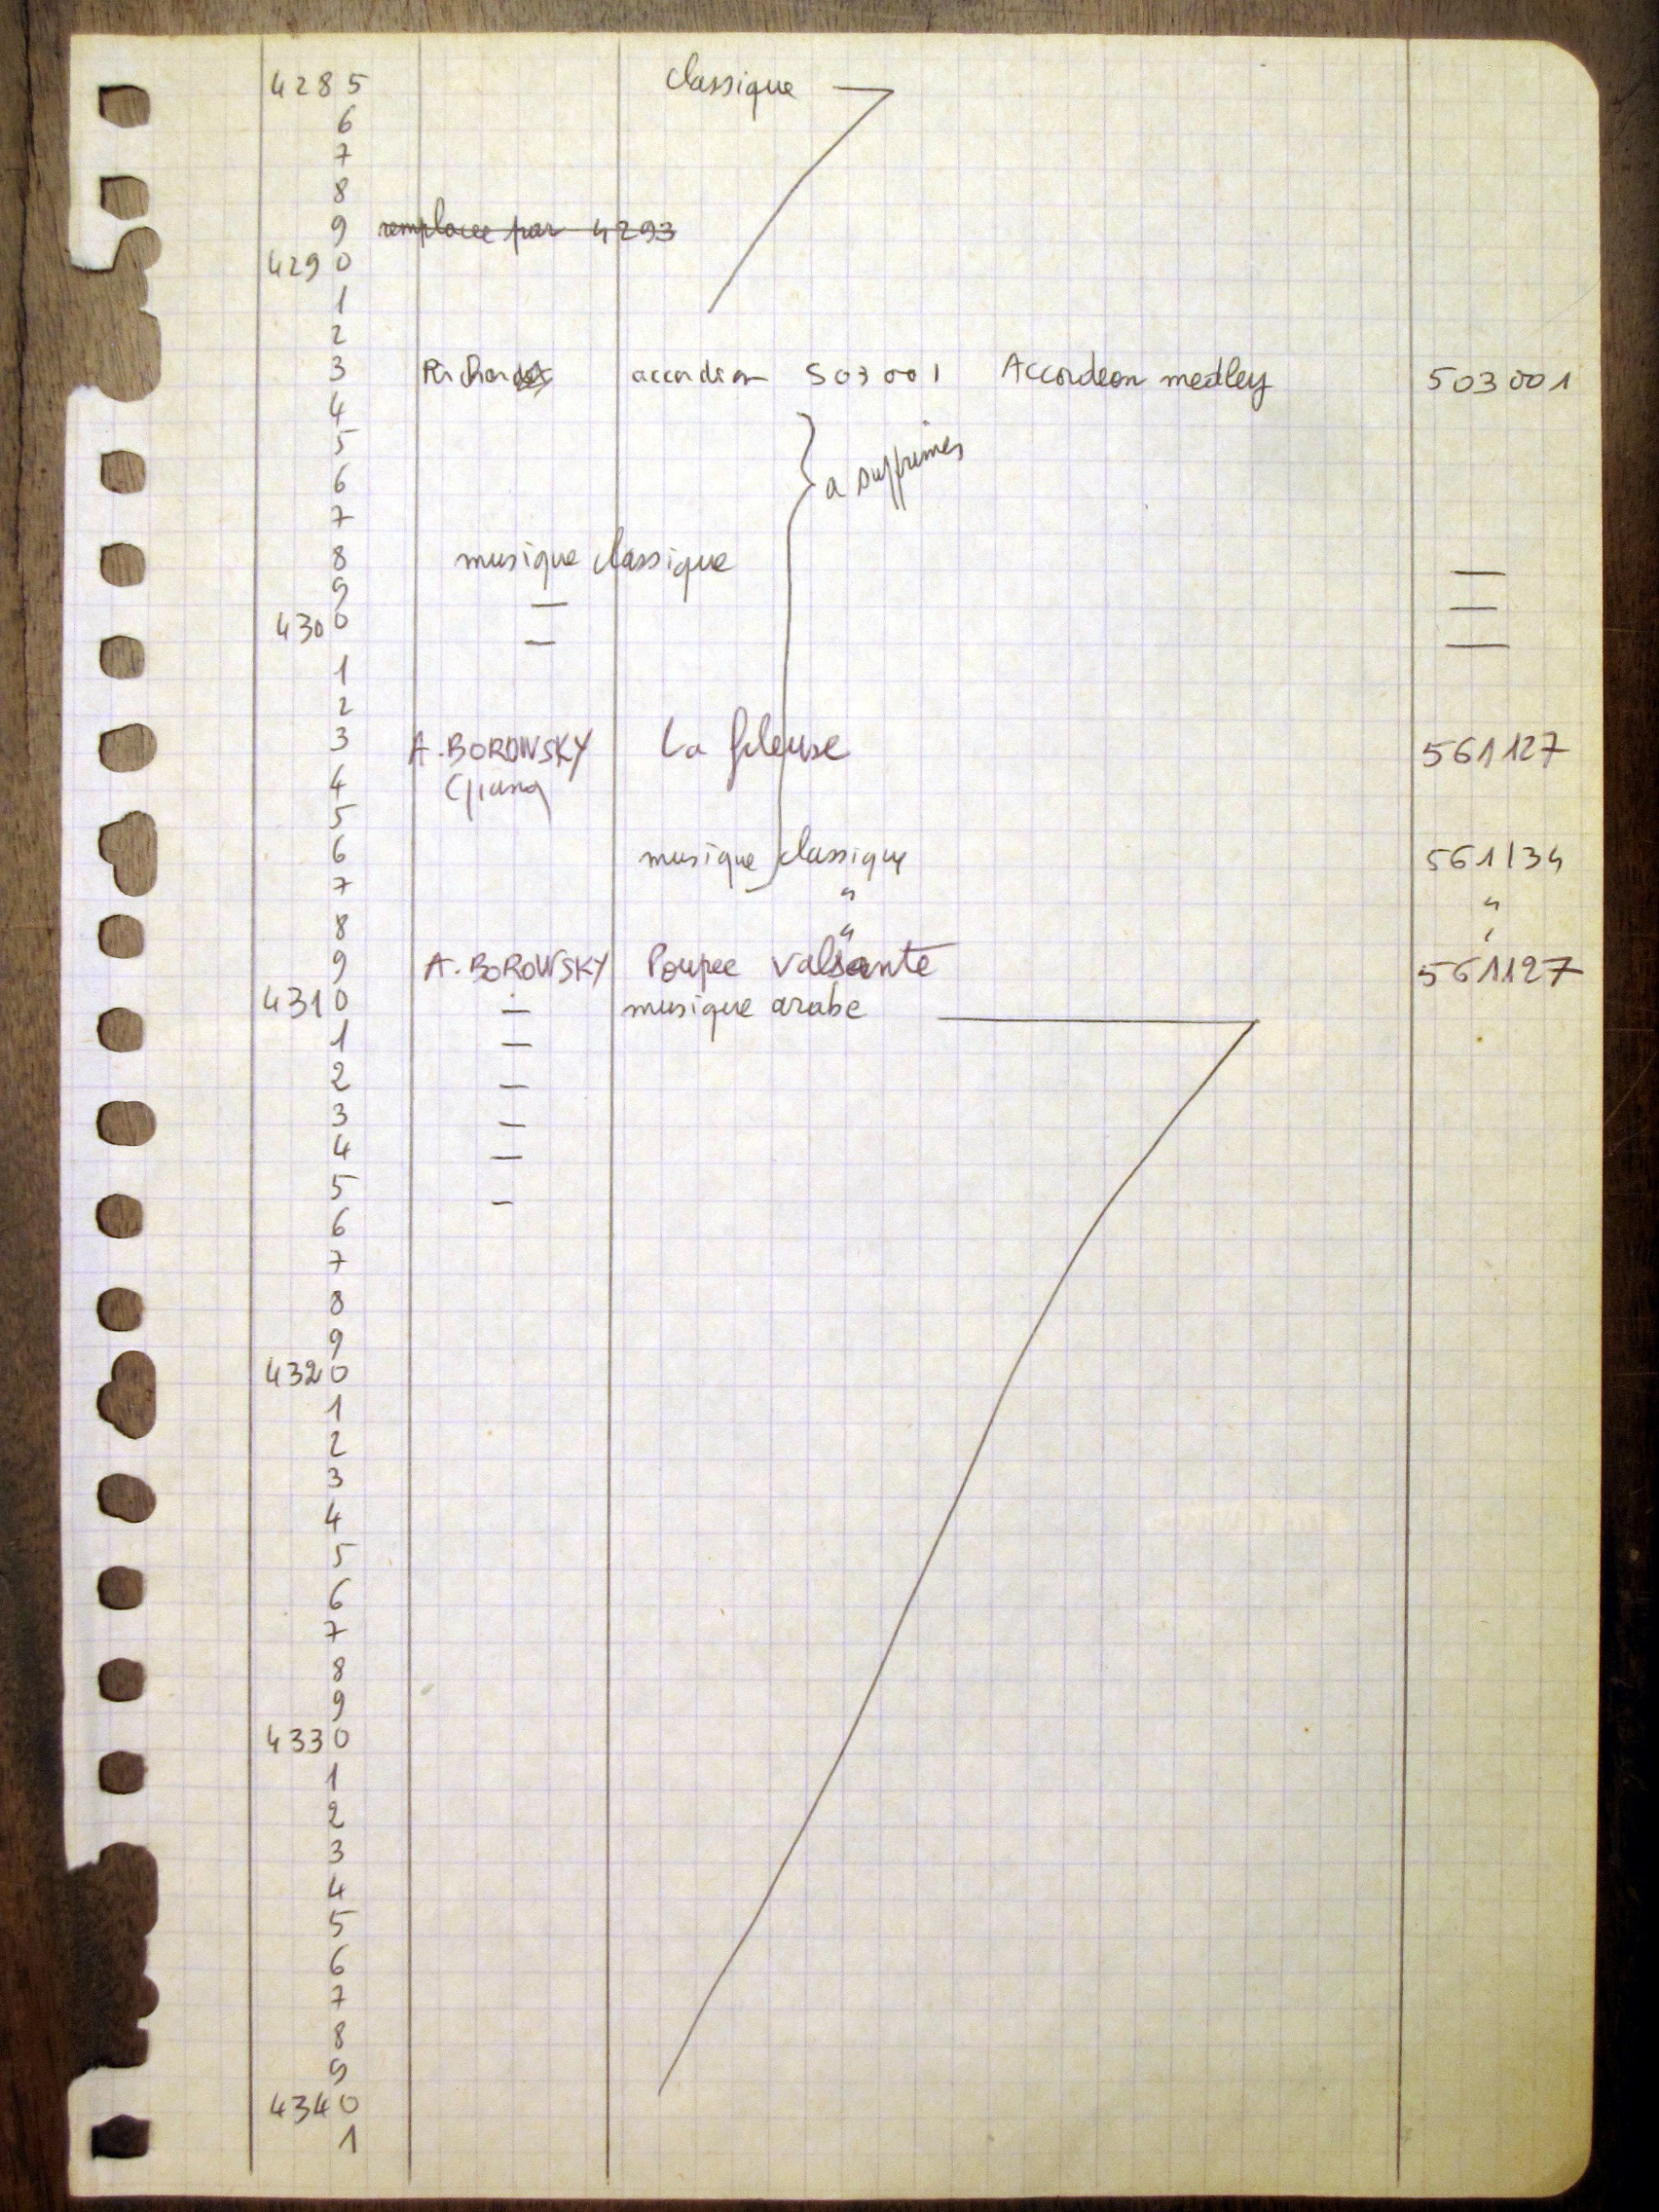 4285 classique —
6
7
8
9 remplacee par 4293
4290
1
2
3 Richard accordeon 503001 Accordeon medley 503001
4
5
6 a supprimer
7
8 musique classique —
9 — —
4300 — —
1
2
3 A. BOROWSKY La fileuse 561127
4
5
6 musique classique 561134
7 " "
8 " "
9 A. BOROWSKY Poupee valsante 561127
4310 — musique arabe —
1 —
2 —
3 —
4 —
5 —
6
7
8
9
4320
1
2
3
4
5
6
7
8
9
4330
1
2
3
4
5
6
7
8
9
4340
1